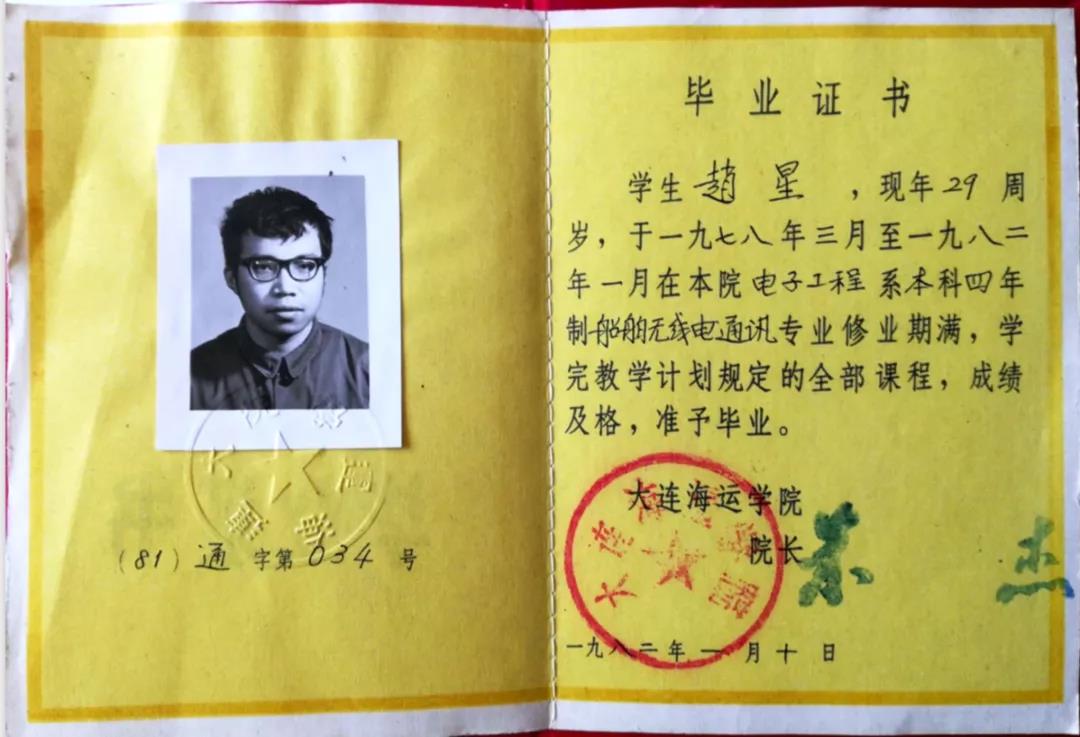 (81) 通 字第 034 号
毕业证书
学生 趙星 ，现年 29 周
岁，于一九七八年三月至一九八二
年一月在本院 电子工程 系本科四年
制船舶无线电通讯专业修业期满，学
完教学计划规定的全部课程，成绩
及格，准予毕业。
大连海运学院
院长
杰
一九八二年一月十日
大连海运学院